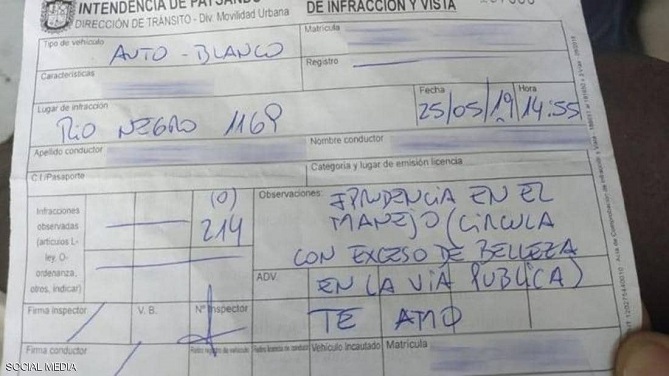 INTENDENCIA DE PAYSAND
DE INFRACCIÓN Y VISTA
DIRECCIÓN DE TRÁNSITO - Div. Movilidad Urbana
Tipo de vehículo
AUTO - BLANCO
Matrícula
Características
Registro
Lugar de infracción
RIO NEGRO 1169
Fecha
25/05/19
Hora
14:55
Apellido conductor
Nombre conductor
C.I/Pasaporte
Categoria y lugar de emisión licencia
Infracciones
observadas
(artículos L-
ley, O-
ordenanza,
otres, indicar)
(0)
214
Observaciones:
IPRUDENCIA EN EL
MANEJO (CIRCULA
CON EXCESO DE BELLEZA
EN LA VIA PUBLICA)
ADV.
TE AMO
Firma inspector
V. B.
Nº Inspector
Firma conductor
Vehículo incautado
Matrícula
SOCIAL MEDIA